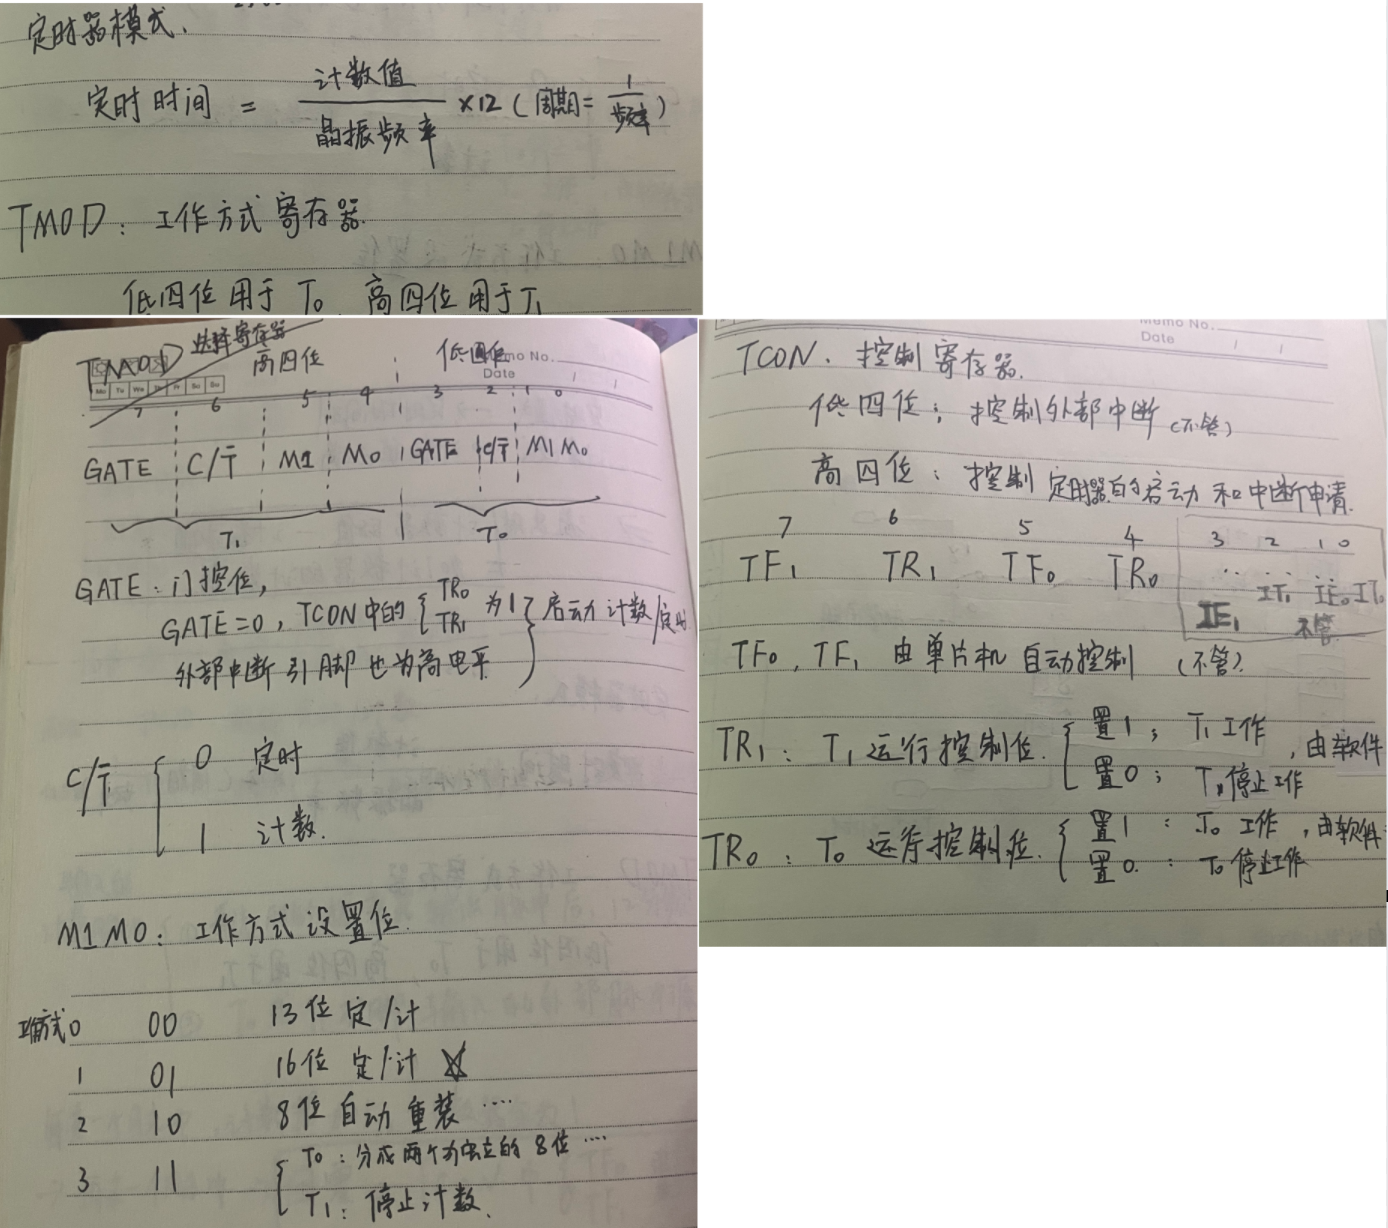 定时器模式.
定时时间 = 计数值/晶振频率 ×12 (周期=1/频率)
TMOD: 工作方式寄存器.
低四位用于 T0, 高四位用于T1
TMOD 选择寄存器 高四位 低四位 Memo No.
Date
Mo Tu We Th Fr Sa Su
7 6 5 4 3 2 1 0
GATE C/T̅ M1 M0 GATE C/T̅ M1 M0
T1 T0
GATE: 门控位,
GATE=0, TCON中的 { TR0 TR1 为1 } 启动计数/定时
外部中断引脚也为高电平
C/T̅ { 0 定时
1 计数.
M1 M0: 工作方式设置位.
工作方式0 00 13位定/计
1 01 16位 定/计 ☆
2 10 8位自动重装 ....
3 11 { T0: 分成两个为独立的 8位 ....
T1: 停止计数.
Memo No.
Date
TCON. 控制寄存器.
低四位; 控制外部中断 (不管)
高四位: 控制定时器的启动和中断申请.
7 6 5 4 3 2 1 0
TF1 TR1 TF0 TR0 IE1 IT1 IE0 IT0
不管
TF0, TF1 由单片机自动控制 (不管).
TR1: T1运行控制位. { 置1; T1工作 , 由软件
置0; T1停止工作
TR0: T0 运行控制位. { 置1: T0 工作 , 由软件
置0.: T0 停止工作